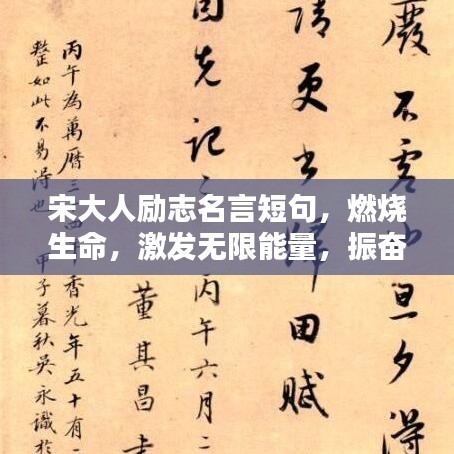 不
旦夕得
更
田賦
先記之
丙午六月二
董其昌
丙午為萬曆三
香光年五十有
整如此不易得也
甲子暮秋吳永識於
宋大人励志名言短句，燃烧
生命，激发无限能量，振奋